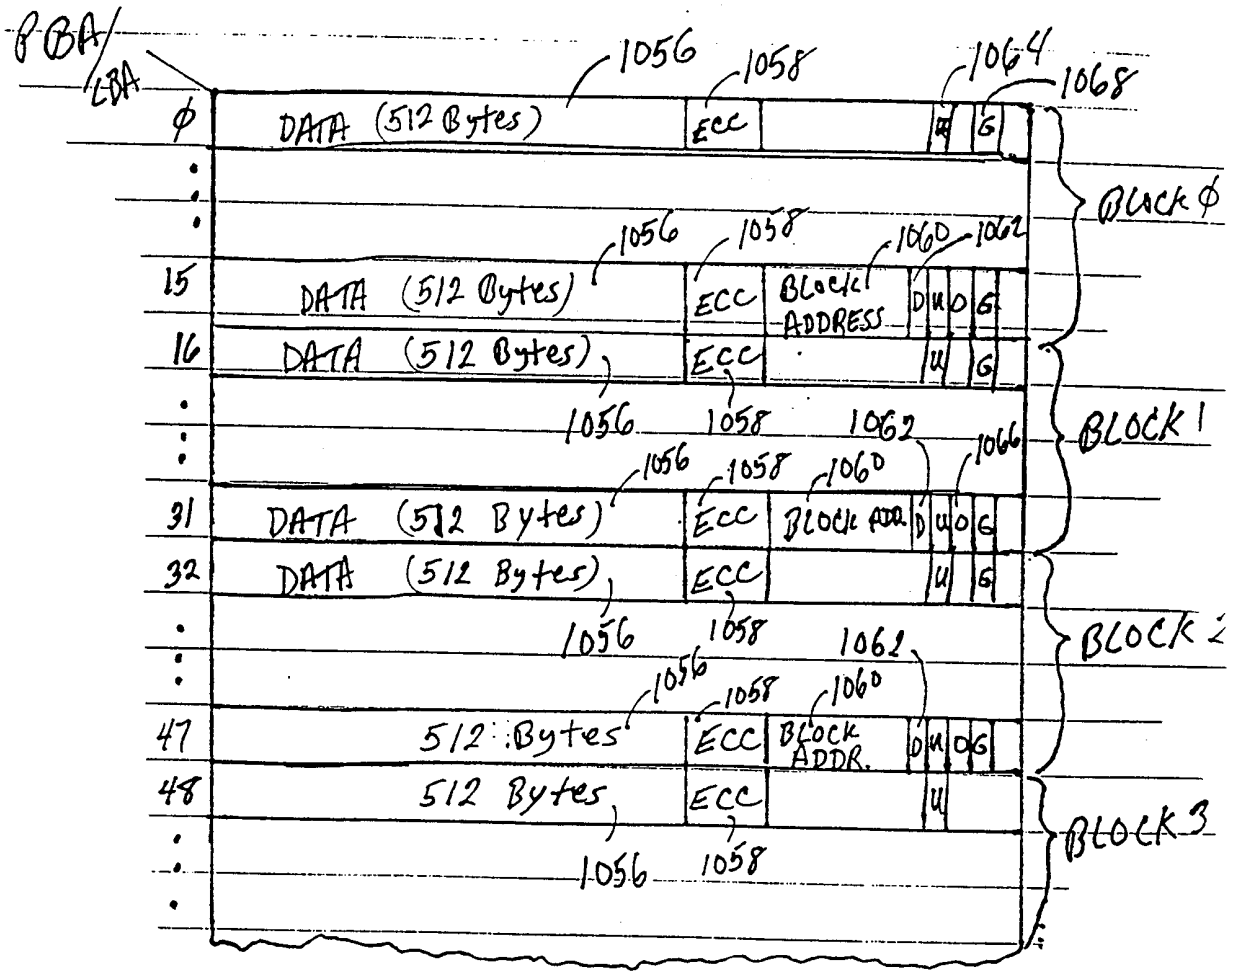 PBA/
LBA
1056
1058
1064
1068
φ DATA (512 Bytes) ECC U G
BLOCK φ
1056 1058 1060 1062
15 DATA (512 Bytes) ECC BLOCK ADDRESS D U O G
16 DATA (512 Bytes) ECC U G
1056 1058 1062 1066
BLOCK 1
1056 1058 1060
31 DATA (512 Bytes) ECC BLOCK ADDR. D U O G
32 DATA (512 Bytes) ECC U G
1056 1058 1062
BLOCK 2
1056 1058 1060
47 512 Bytes ECC BLOCK ADDR. D U O G
48 512 Bytes ECC U
BLOCK 3
1056 1058